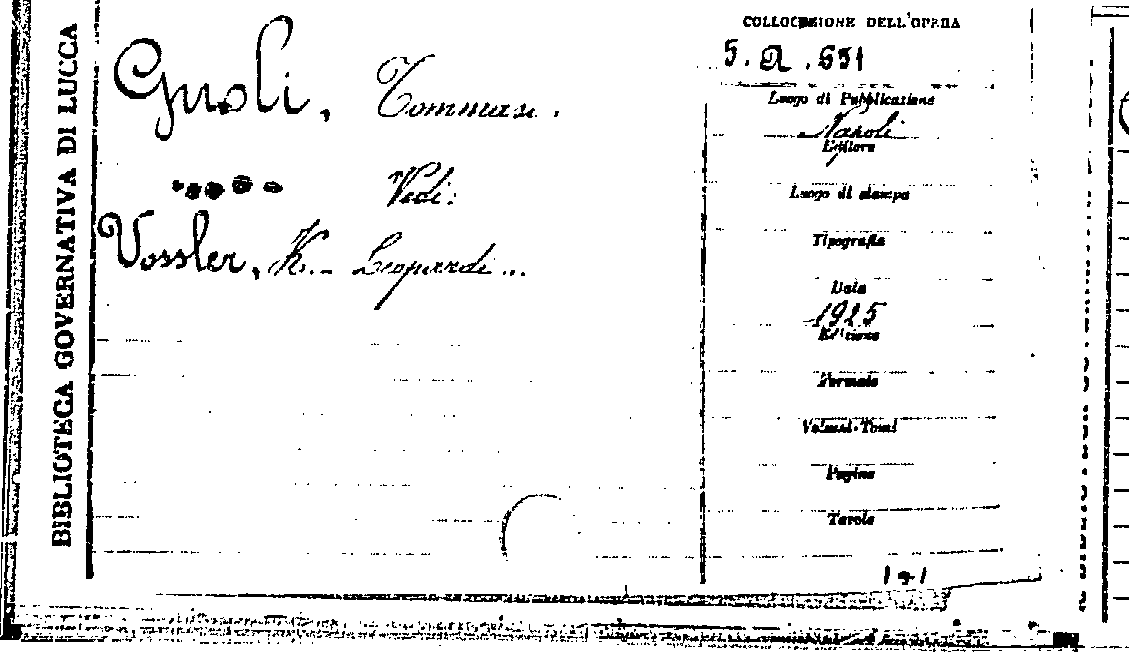 BIBLIOTECA GOVERNATIVA DI LUCCA
Gnoli, Tommaso.
Vedi:
Vossler, K. - Leopardi ...
COLLOCAZIONE DELL'OPERA
5. D. 651
Luogo di Pubblicazione
Napoli
Editore
Luogo di stampa
Tipografia
Data
1925
Edizione
Formato
Volumi-Tomi
Pagine
Tavole